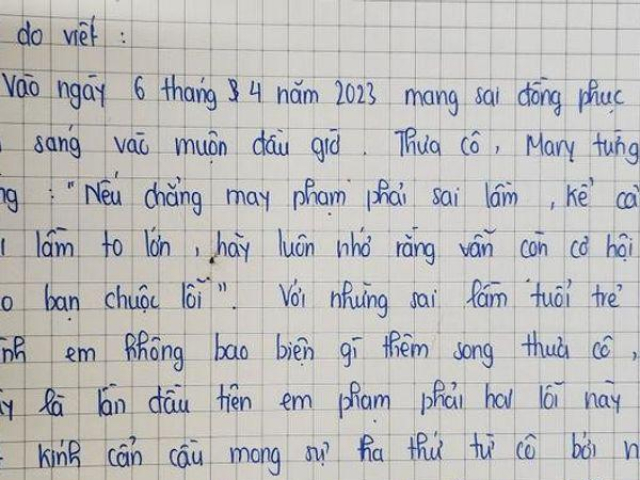 do viết :
Vào ngày 6 tháng 4 năm 2023 mang sai đồng phục
sang vào muộn đầu giờ . Thưa cô , Mary từng
: "Nếu chẳng may phạm phải sai lầm , kể cả
lầm to lớn , hãy luôn nhớ rằng vẫn còn cơ hội
bạn chuộc lỗi ". Với những sai lầm tuổi trẻ
em không bao biện gì thêm song thưa cô ,
là lần đầu tiên em phạm phải hai lỗi này
kính cẩn cầu mong sự tha thứ từ cô bởi